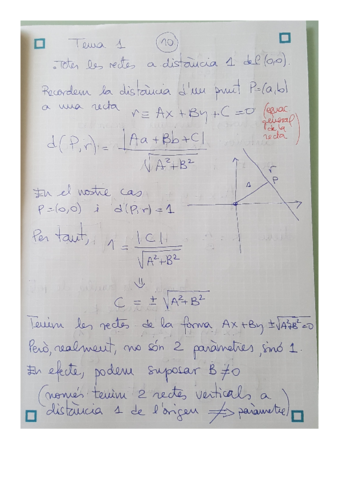 Tema 1 10
Totes les rectes a distància 1 del (0,0).
Recordem la distància d'un punt P=(a,b)
a una recta r ≡ Ax + By + C = 0 (equac. general de la recta)
d(P,r) = |Aa + Bb + C| / √A²+B²
En el nostre cas
P=(0,0) i d(P,r)=1
Per tant, 1 = |C| / √A²+B²
⇓
C = ± √A²+B²
r
P
Tenim les rectes de la forma Ax+By ±√A²+B²=0
Però, realment, no són 2 paràmetres, sinó 1.
En efecte, podem suposar B≠0
(només tenim 2 rectes verticals a
distància 1 de l'origen paràmetre)